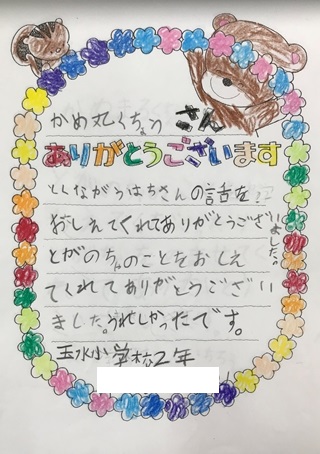 かめ丸くちょう さん
ありがとうございます
とくながうはちさんの話を
おしえてくれてありがとうござ
いました。
とがのちゃのことをおしえ
てくれてありがとうござい
ました。うれしかったです。
玉水小学校2年